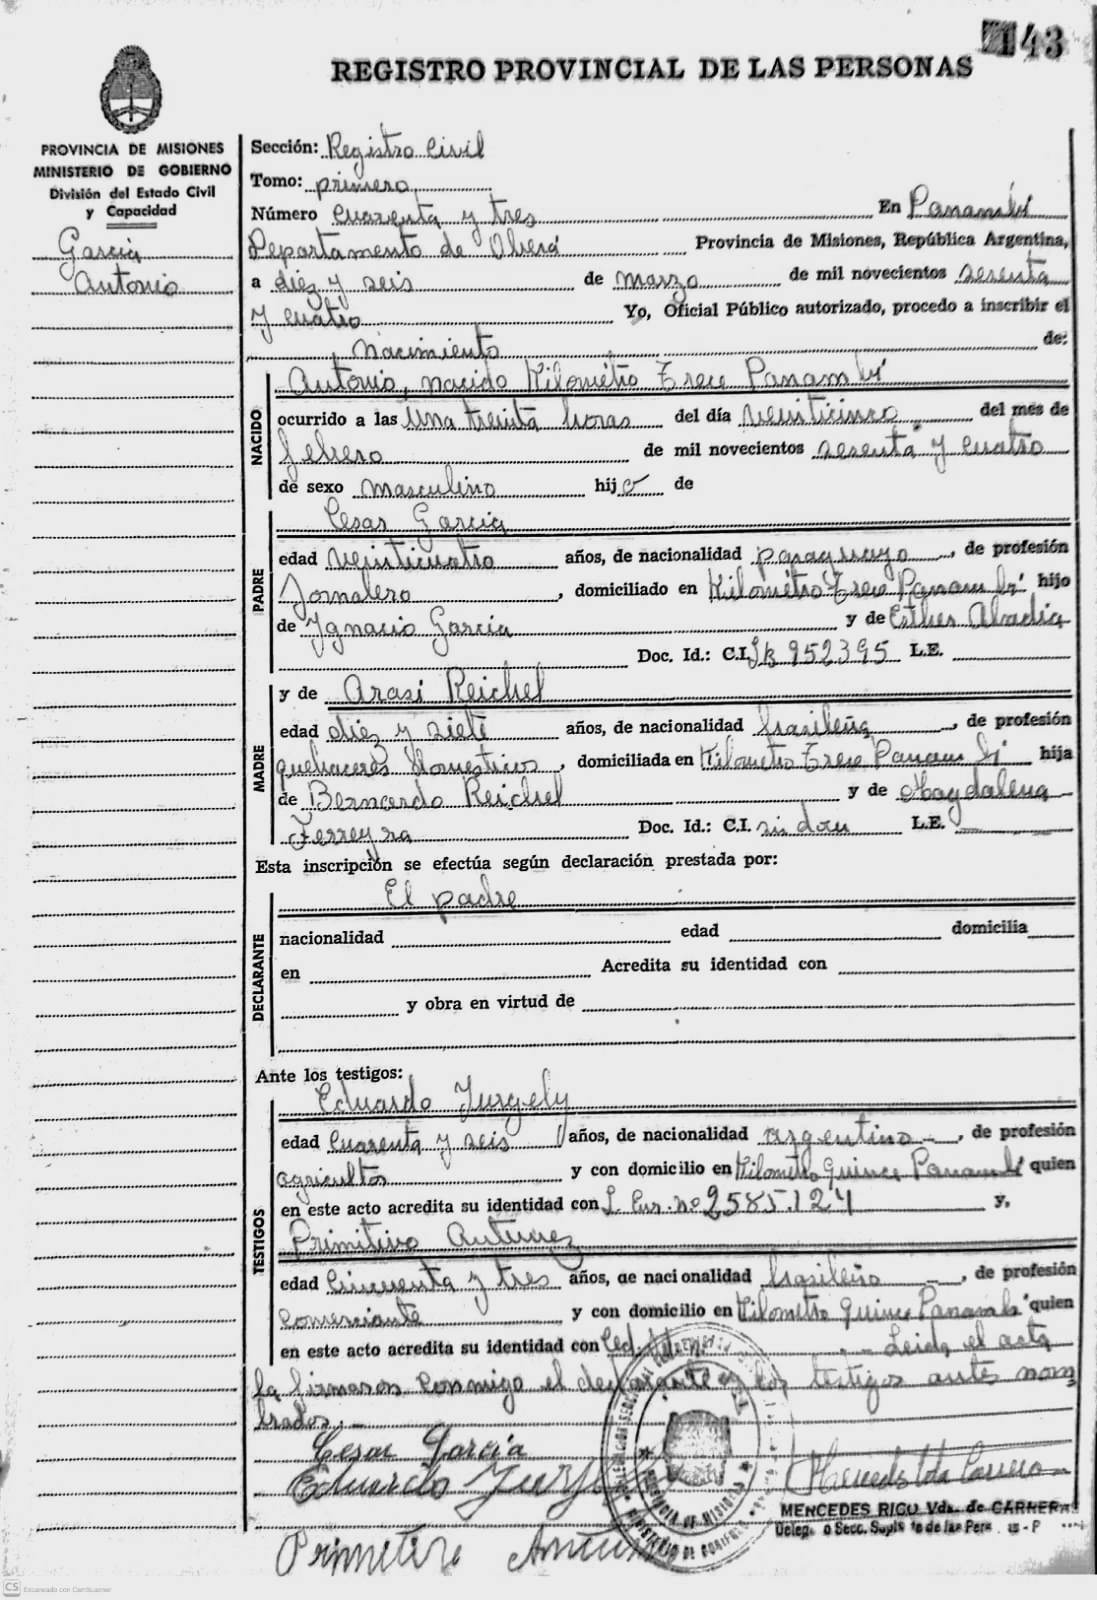 143
REGISTRO PROVINCIAL DE LAS PERSONAS
PROVINCIA DE MISIONES
MINISTERIO DE GOBIERNO
División del Estado Civil
y Capacidad
Garcia
Antonio
Sección: Registro Civil
Tomo: primero
Número cuarenta y tres En Panambí
Departamento de Oberá Provincia de Misiones, República Argentina,
a diez y seis de marzo de mil novecientos sesenta
y cuatro Yo, Oficial Público autorizado, procedo a inscribir el
nacimiento de:
NACIDO
Antonio, nacido Kilométro Trece Panambí
ocurrido a las una treinta horas del día veinticinco del mes de
febrero de mil novecientos sesenta y cuatro
de sexo masculino hijo de
PADRE
Cesar Garcia
edad veinticuatro años, de nacionalidad paraguayo, de profesión
Jornalero, domiciliado en Kilométro Trece Panambí hijo
de Ygnacio Garcia y de Esther Abadia
Doc. Id.: C.I. 952395 L.E.
MADRE
y de Arasi Reichel
edad diez y siete años, de nacionalidad brasileña, de profesión
quehaceres domesticos, domiciliada en Kilometro Trece Panambí hija
de Bernardo Reichel y de Magdalena
Ferreyra Doc. Id.: C.I. sin dcu L.E.
Esta inscripción se efectúa según declaración prestada por:
DECLARANTE
El padre
nacionalidad edad domicilia
en Acredita su identidad con
y obra en virtud de
Ante los testigos:
TESTIGOS
Eduardo Jurgely
edad cuarenta y seis años, de nacionalidad argentino, de profesión
agricultor y con domicilio en Kilométro Quince Panambí quien
en este acto acredita su identidad con L. Enr. nº 2585.124 y,
Primitivo Antunez
edad cincuenta y tres años, de nacionalidad brasileño, de profesión
comerciante y con domicilio en Kilometro Quince Panambí quien
en este acto acredita su identidad con Ced. Leida el acta
la firmaron conmigo el declarante y los testigos antes nom
brados.
Cesar García
Eduardo
MERCEDES RIGO Vda. de CARRERA
Primitivo
PROVINCIA DE MISIONES
MINISTERIO DE GOBIERNO
CS Escaneado con CamScanner